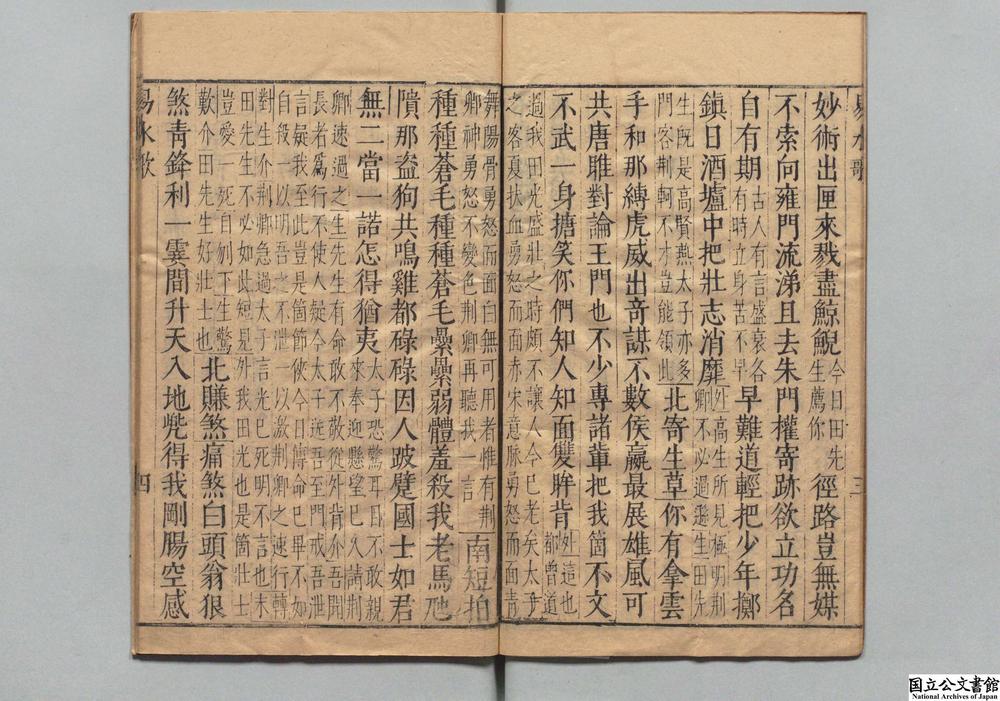 易水歌 三
妙術出匣來戮盡鯨鯢今日田先生薦你徑路豈無媒
不索向雍門流涕且去朱門權寄跡欲立功名
自有期古人有言盛衰各有時立身苦不早早難道輕把少年擲
鎮日酒壚中把壯志消靡处高生所見極明荆卿不必過遜生田先
生旣是高賢燕太子亦多門客荆軻不才豈能領此北寄生草你有拿雲
手和那縛虎威出竒謀不數侯嬴最展雄風可
共唐雎對論王門也不少專諸輩把我箇不文
不武一身搪笑你們知人知面雙眸肯处這也都曾道
過我田光盛壯之時頗不讓人今已老矣太子之客夏扶血勇怒而面赤宋意脉勇怒而面青
舞陽骨勇怒而面白無可用者惟有荆卿神勇怒不變色荆卿再聽我一言南短拍
種種蒼毛種種蒼毛纍纍弱體羞殺我老馬虺
隤那盗狗共鳴雞都碌碌因人跛躄國士如君
無二當一諾怎得猶夷太子恐驚耳目不敢親來奉迎懸望已久請荆
卿速過之生先生有命敢不敬從外背介吾聞長者爲行不使人疑今太子送吾至門戒吾泄
言疑我至此豈是箇節俠今日傳命已畢不如自殺一以明吾之不泄一以激荆卿之速行轉
對生介荆卿急過太子言光已死明不言也末田先生不必如此短見外我田光也是箇壯士
豈愛一死自刎下生驚歎介田先生好壯士也北賺煞痛煞白頭翁狠
煞靑鋒利一霎間升天入地兠得我剛腸空感
易水歌 四
国立公文書館
National Archives of Japan